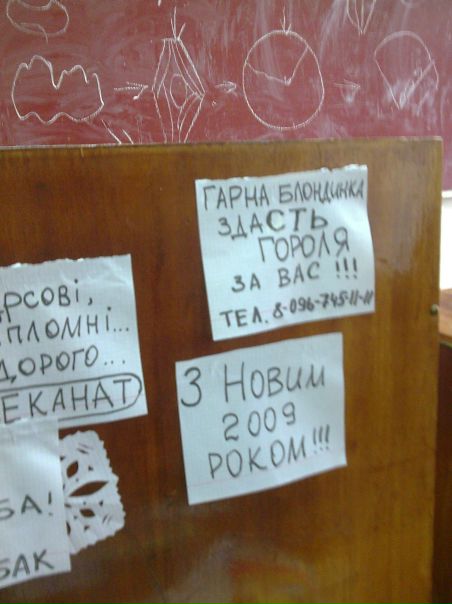 ГАРНА БЛОНДИНКА
ЗДАСТЬ
ГОРОЛЯ
ЗА ВАС !!!
ТЕЛ. 8-096-745-11-11
РСОВІ,
ПЛОМНІ...
ДОРОГО...
ЕКАНАТ
З НОВИМ
2009
РОКОМ!!!
БА!
БАК